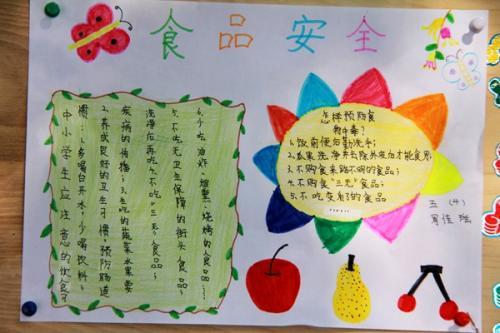 食品安全
中小学生应注意的饮食习
惯:1.多喝白开水,少喝饮料;
2.养成良好的卫生习惯,预防肠道
疾病的传播;3.生吃的蔬菜水果要
洗净后再吃;4.不吃"三无"食品;
5.不吃无卫生保障的街头食品;
6.少吃油炸、烟熏、烧烤的食品;
怎样预防食
物中毒?
1.饭前便后勤洗手;
2.瓜果洗净并去除外皮后才能食用;
3.不购食来路不明的食品;
4.不购食"三无"食品;
5.不吃变质了的食品
......
五(4)